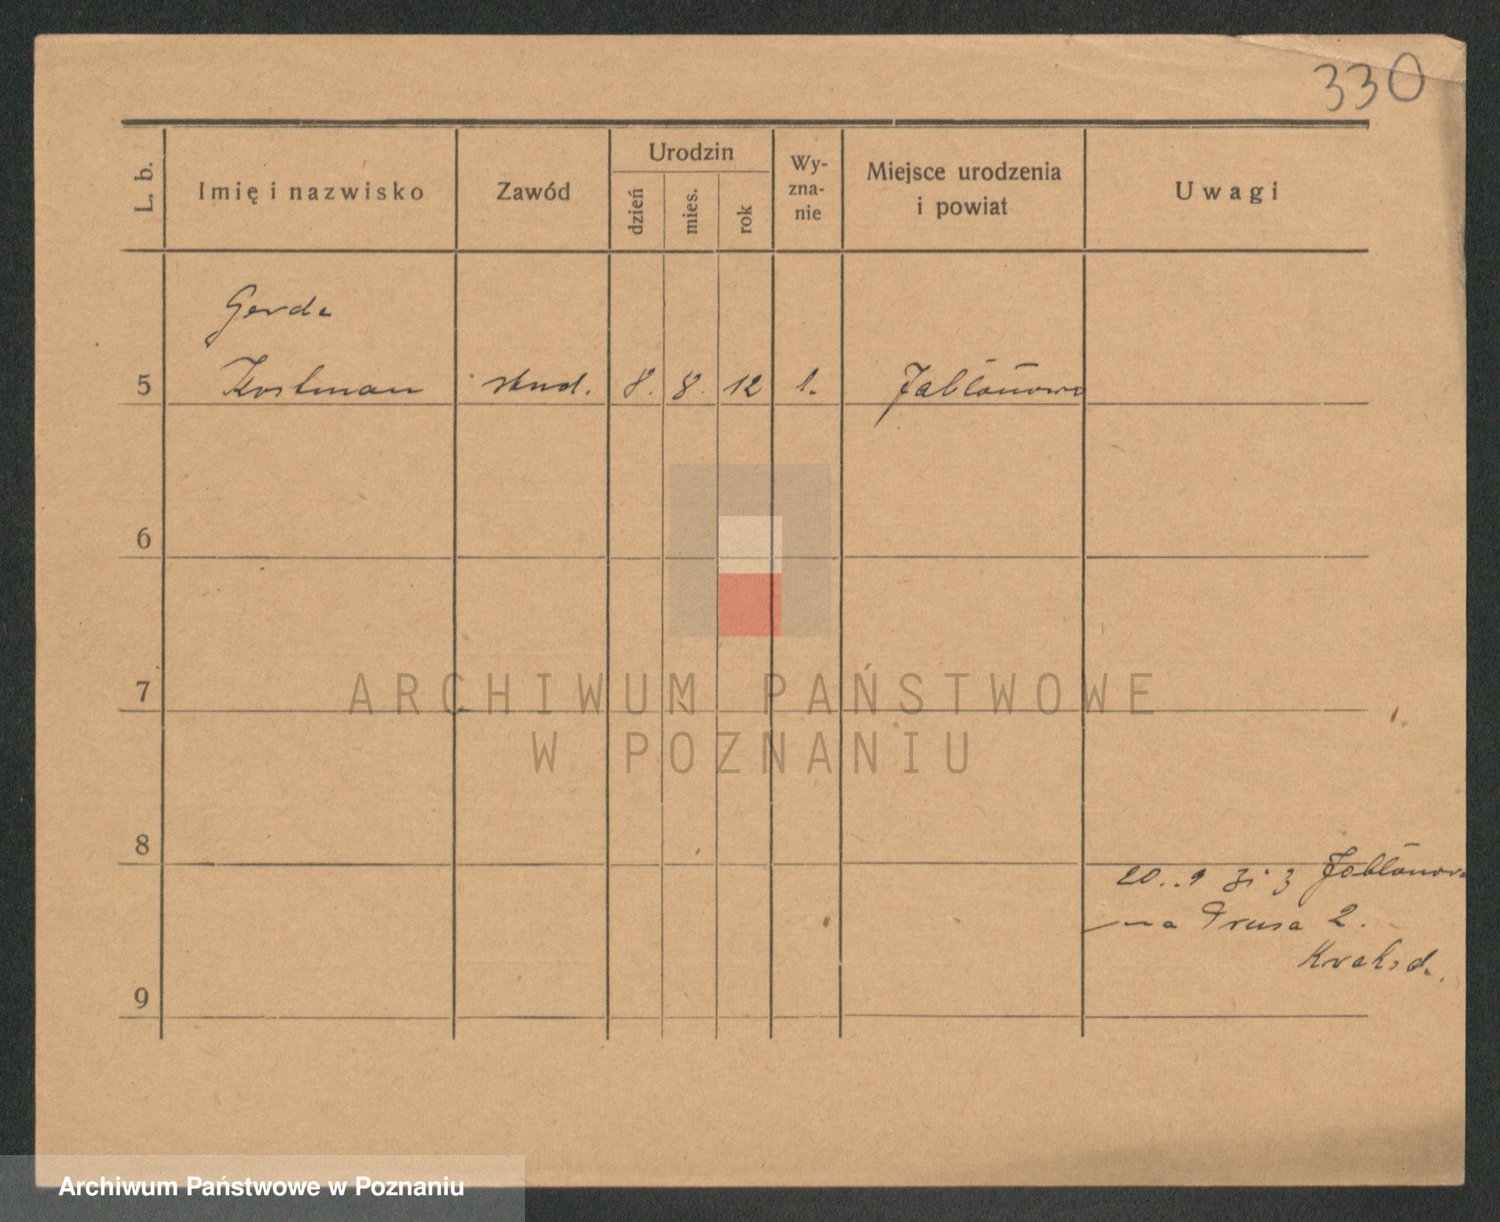 330
L. b.
Imię i nazwisko
Zawód
Urodzin
dzień
mies.
rok
Wy-
zna-
nie
Miejsce urodzenia
i powiat
Uwagi
Gerda
5 stud. 8. 8. 12 Jabłonowo
6
7
8
9
20. 9 z Jabłonowa
na Prusa 2.
ARCHIWUM PAŃSTWOWE
W POZNANIU
Archiwum Państwowe w Poznaniu